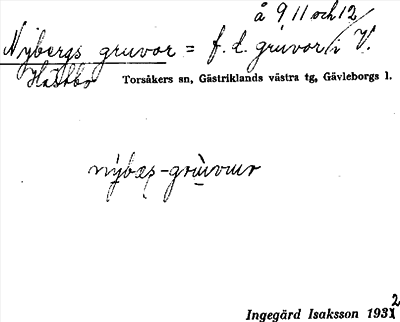 å 9 11 och 12
Nybergs gruvor = f. d. gruvor i V.
Hästbo
Torsåkers sn, Gästriklands västra tg, Gävleborgs l.
nýbæș-grù̱vɯr
Ingegärd Isaksson 1932